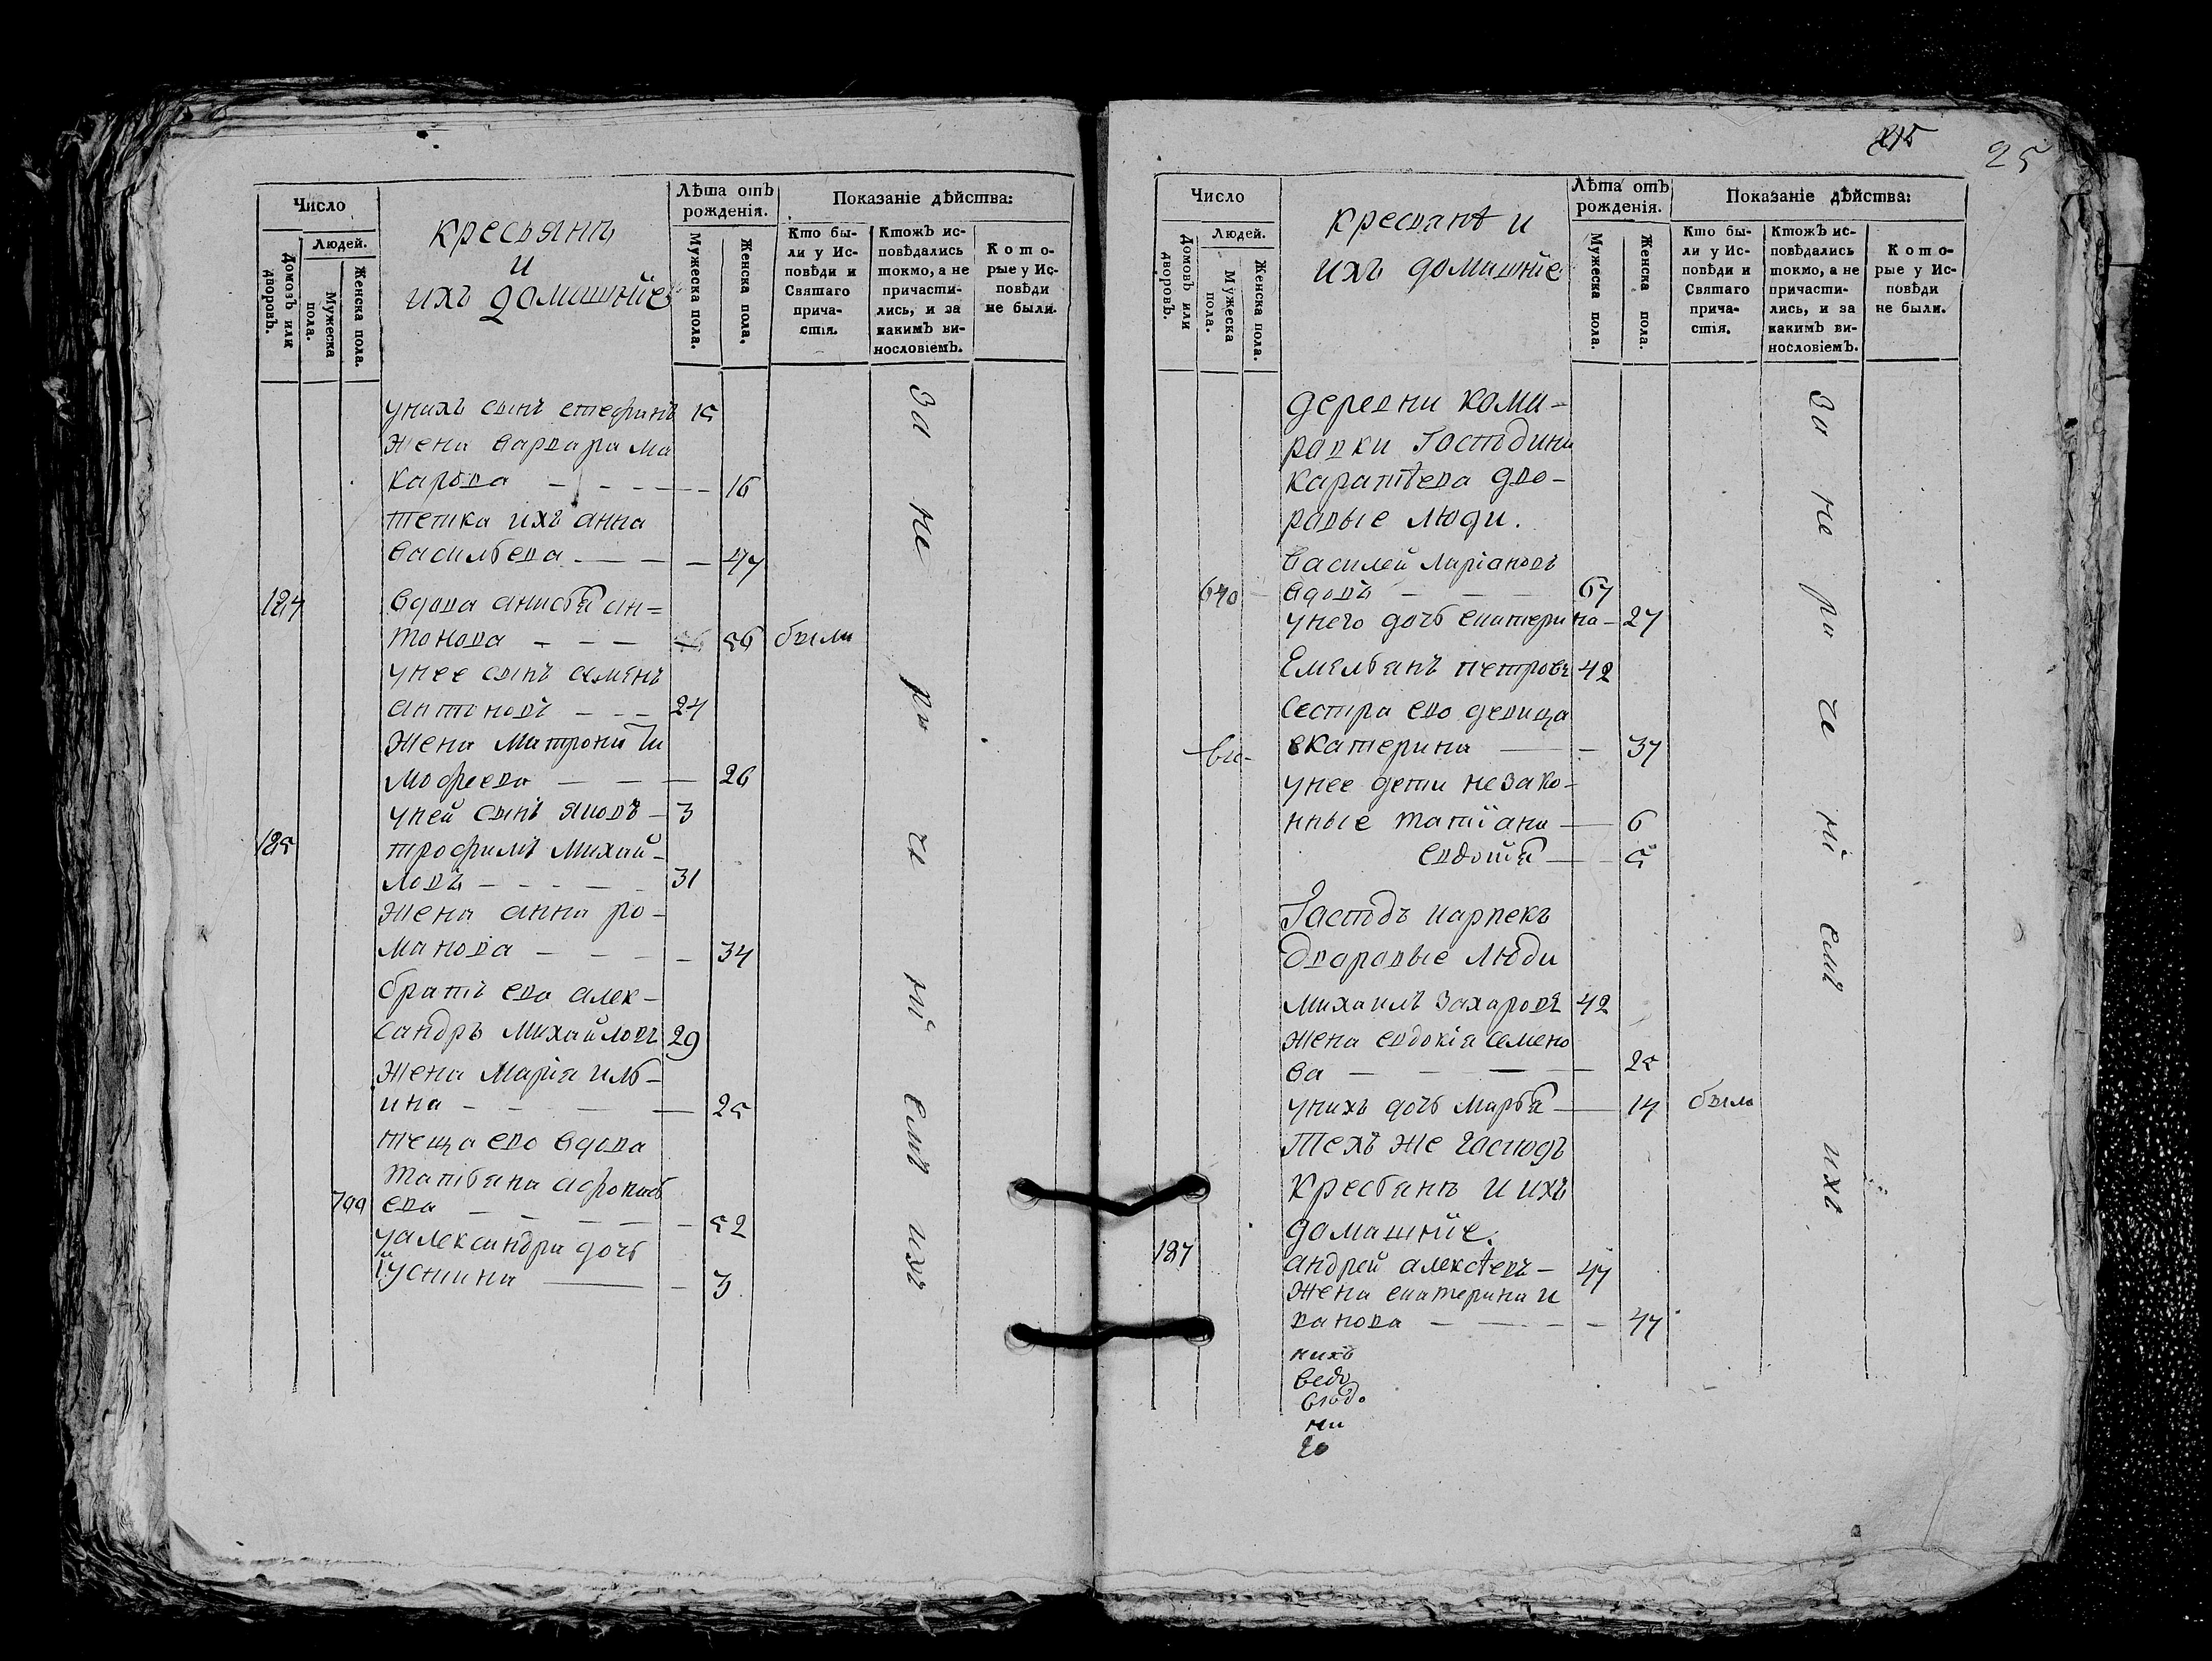 Число
Людей.
Домовъ или дворовъ.
Мужеска пола.
Женска пола.
Кресьянъ
и
ихъ домашніе
Лѣта отъ рожденія.
Мужеска пола.
Женска пола.
Показаніе дѣйства:
Кто бы-
ли у Ис-
повѣди и
Святаго
прича-
стія.
Ктожъ ис-
повѣдались
токмо, а не
причасти-
лись, и за
какимъ ви-
нословіемъ.
Кото-
рые у Ис-
повѣди
не были.
унихъ сынъ стефанъ 15
жена варвара ма
карова 16
тетка ихъ анна
васильева 47
184 вдова анисья ан=
тонова 56 были
унее сынъ семенъ
антоновъ 24
жена матрона ти
мофеева 26
уней сынъ яковъ 3
185 трофимъ михай-
ловъ 31
жена анна ро-
манова 34
братъ ево алек-
сандръ михайловъ 29
жена марія иль-
ина 25
теща ево вдова
татьяна афонась
ева 52
уалександра дочь
иустина 3
за не ра че ні емъ ихъ
25
Число
Людей.
Домовъ или дворовъ.
Мужеска пола.
Женска пола.
кресьянѣ и
ихъ домашніе
Лѣта отъ рожденія.
Мужеска пола.
Женска пола.
Показаніе дѣйства:
Кто бы-
ли у Ис-
повѣди и
Святаго
прича-
стія.
Ктожъ ис-
повѣдались
токмо, а не
причасти-
лись, и за
какимъ ви-
нословіемъ.
Кото-
рые у Ис-
повѣди
не были.
деревни кома-
ровки Господина
каратѣева дво-
ровые люди.
василей ларіановъ
640 вдовъ 67
унего дочь екатерина 27
Емельянъ петровъ 42
Сестра ево девица
екатерина 37
унее дети незако-
нные татіана 6
евдокія 5
Господъ
дворовые люди
михаилъ захаровъ 42
жена евдокія семено
ва 25
унихъ дочь марья 14 была
Техъ же господъ
кресьянъ и ихъ
домашніе.
187 андрей алексѣевъ 47
жена екатерина и
ванова 47
нихъ
за не ра че ні емъ ихъ